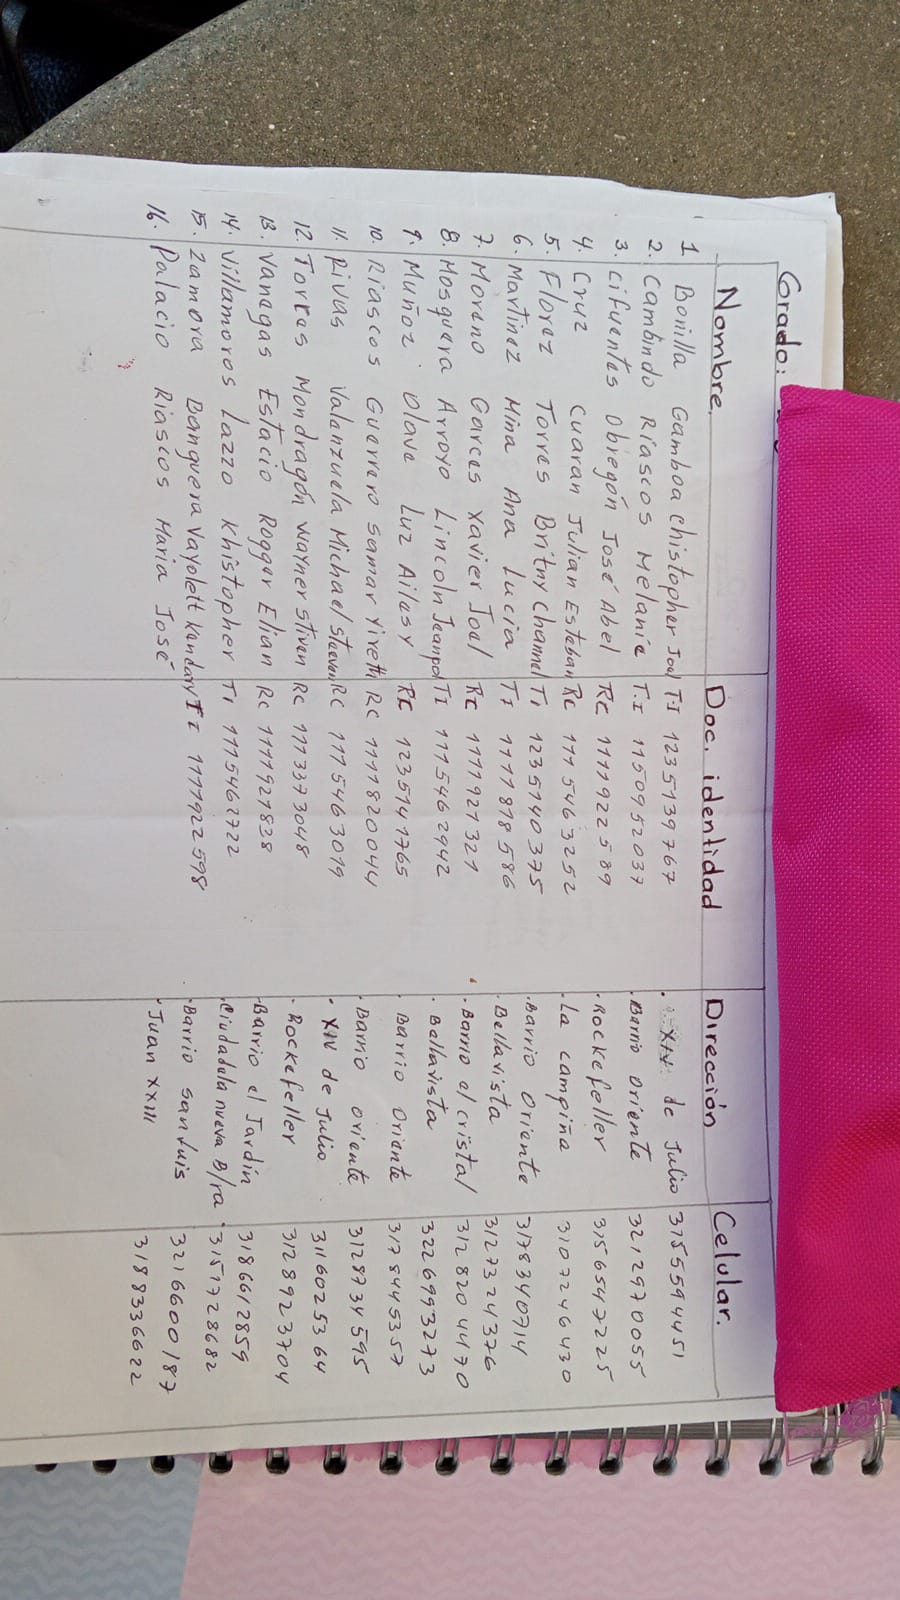 Grado:
Nombre. Doc. identidad Dirección Celular.
1 Bonilla Gamboa Chistopher Joel T.I 1235139767 . XIV de Julio 3155594451
2. Cambindo Riascos Melanie T.I 1150952037 . Barrio Oriente 3212970055
3. Cifuentes Obregón José Abel RC 1111922589 . Rockefeller 3156547225
4. Cruz Cuaran Julian Esteban RC 1115463252 . La campiña 3107246430
5. Florez Torres Britny Channel TI 1235140375 . Barrio Oriente 3178340714
6. Martinez Mina Ana Lucia TI 1111818586 . Bellavista 3127324376
7. Moreno Garces Xavier Joel RC 1111921321 . Barrio el cristal 312 820 4470
8. Mosquera Arroyo Lincoln Jeanpol TI 1115462942 . Bellavista 3226993273
9. Muñoz Olave Luz Ailesy RC 1235141765 . Barrio Oriente 3178445357
10. Riascos Guerrero Samar Yireth RC 1111820044 . Barrio oriente 3128734595
11. Rivas Valenzuela Michael Steeven RC 1115463019 . XIV de Julio 3116025364
12. Torres Mondragón Wayner Stiven RC 1113373048 . Rockefeller 3128923704
13. Vanegas Estacio Rogger Elian RC 1111921838 . Barrio el Jardín 3186612859
14. Villamoros Lazzo Khistopher TI 1115462722 . Ciudadela nueva B/ra 3151728682
15. Zamora Banguera Vayolett Kendary TI 1111922598 . Barrio San Luis 3216600187
16. Palacio Riascos Maria José . Juan XXIII 3188336622